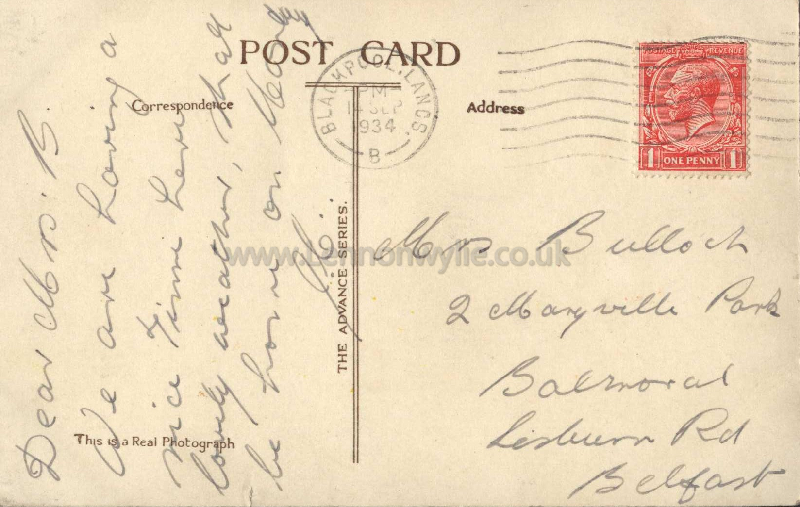 POST CARD
Correspondence
Address
BLACKPOOL, LANCS.
PM
14 SEP
1934
B
POSTAGE REVENUE
1 ONE PENNY 1
Dear Mrs. B.
We are having a
nice time here
lovely weather, shall
be home on
THE ADVANCE SERIES.
This is a Real Photograph
Mrs Bulloch
2 Maryville Park
Balmoral
Lisburn Rd
Belfast
www.Lennonwylie.co.uk